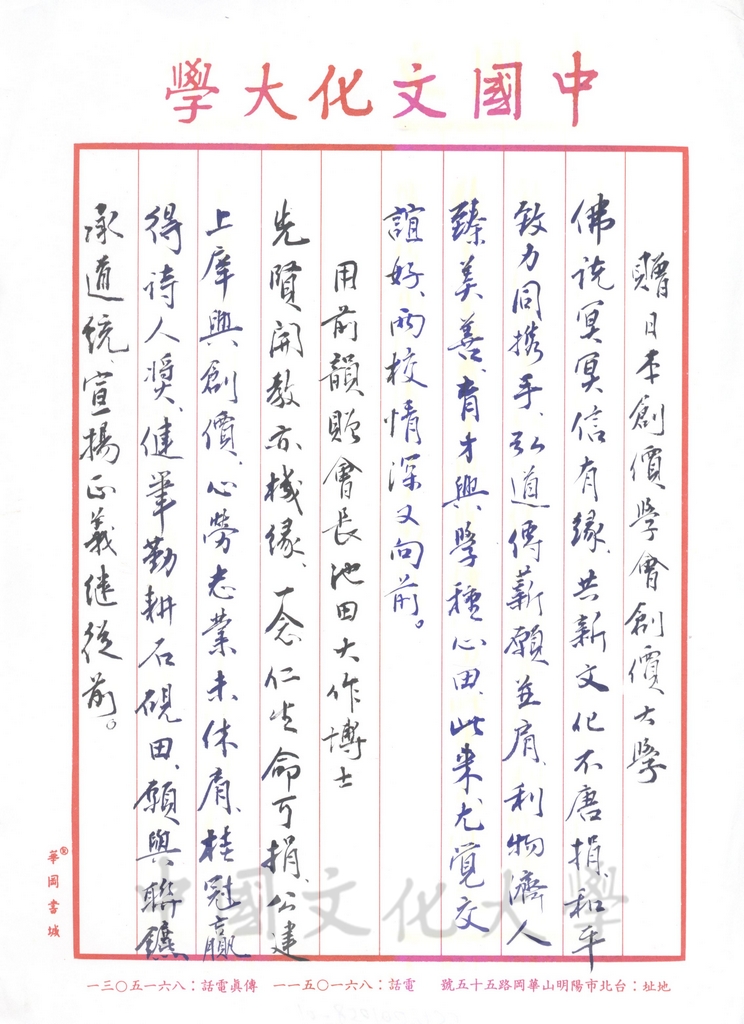 中國文化大學
贈日本創價學會創價大學
佛说冥冥信有緣、共新文化不唐捐、和平
致力同携手、弘道傳薪願並肩、利物濟人
臻美善、育才興學種心田、此來尤覺交
誼好、兩校情深又向前。
用前韻贈會長池田大作博士
先賢開教亦機緣、一念仁生命可捐、公建
上庠興創價、心勞志業未休肩、桂冠贏
得诗人奬、健筆勤耕石硯田、願與聯鑣
承道統、宣揚正義继從前。
華岡書城
地址：台北市陽明山華岡路五十五號 電話：八六一０五一一 傳真電話：八六一五０三一
中國文化大學